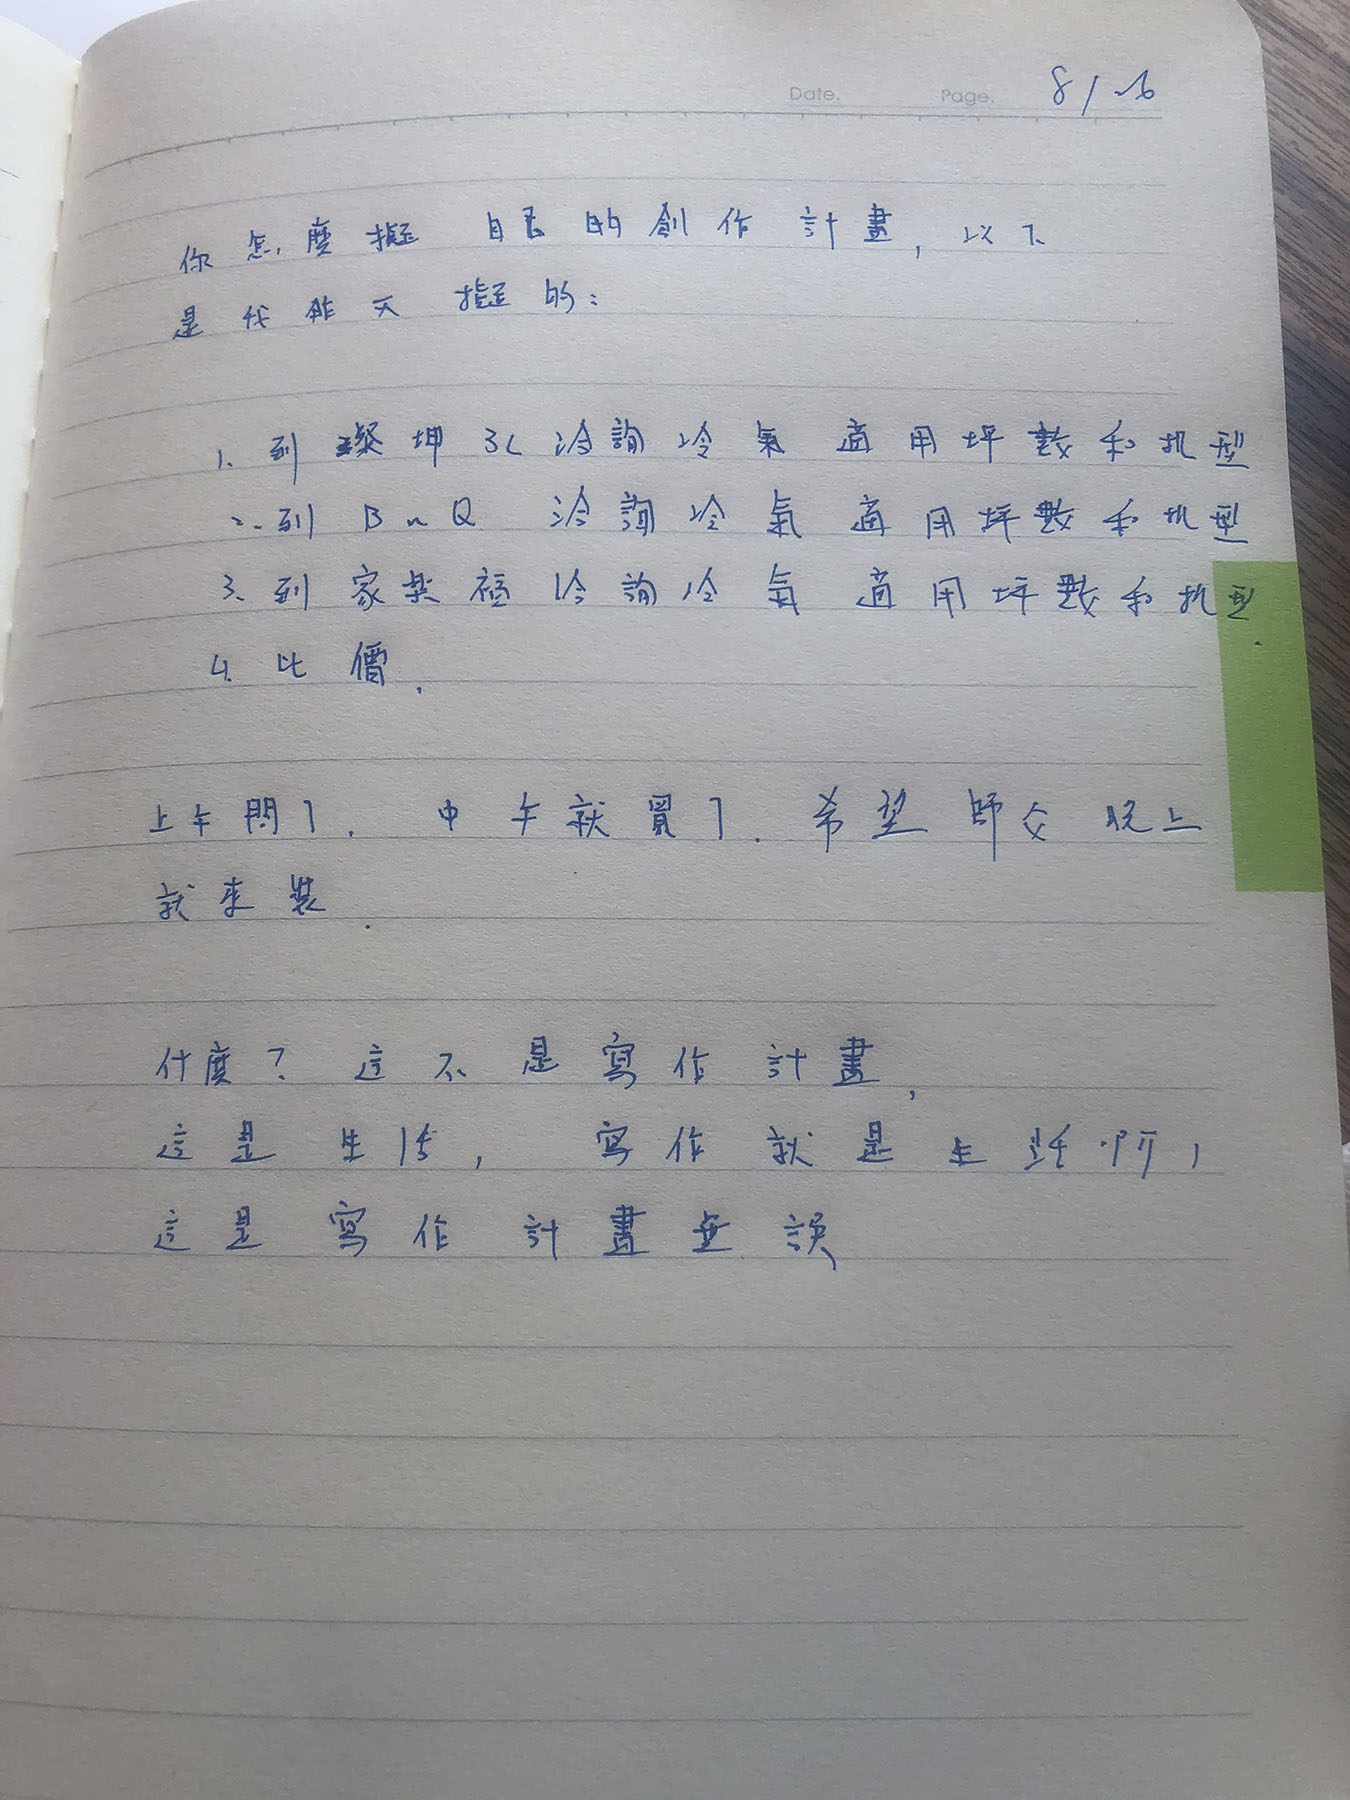 Date. Page. 8/26
你怎麼擬自己的創作計畫,以下
是我昨天擬的:
1. 到燦坤3C洽詢冷氣適用坪數和机型
2. 到BnQ 洽詢冷氣適用坪數和机型
3. 到家樂福洽詢冷氣適用坪數和机型.
4. 比價.
上午問了. 中午就買了. 希望師父晚上
就來裝.
什麼?這不是寫作計畫,
這是生活, 寫作就是生活啊,
這是寫作計畫無誤